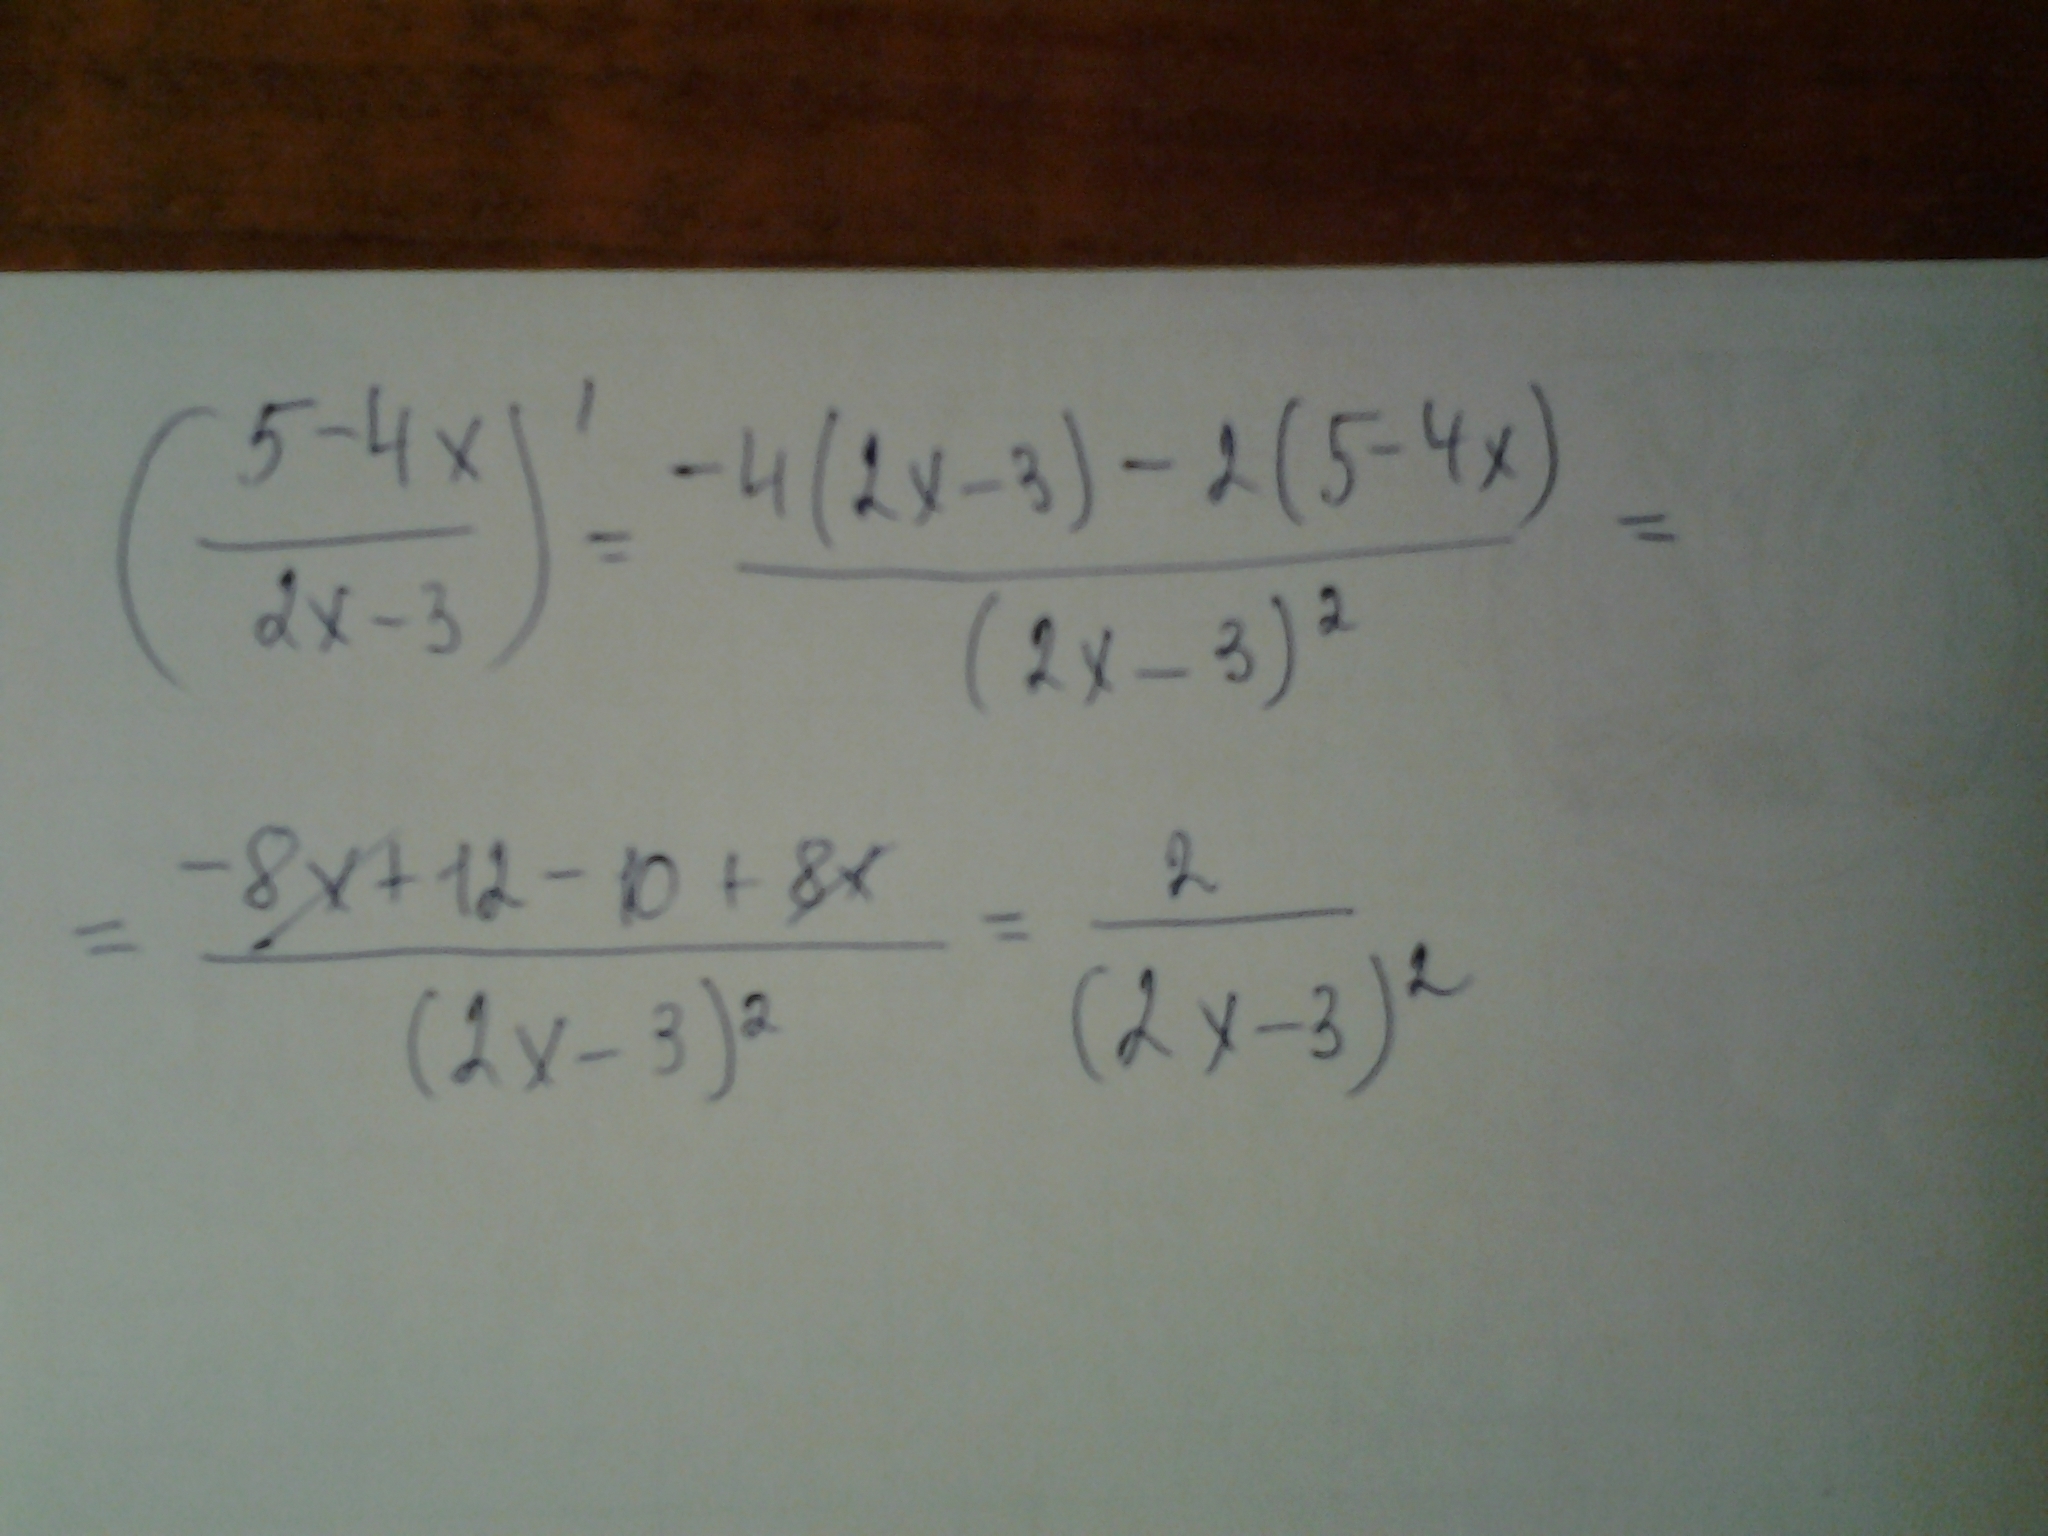 (5-4x / 2x-3)' = -4(2x-3) - 2(5-4x) / (2x-3)² =
= -8x+12-10+8x / (2x-3)² = 2 / (2x-3)²